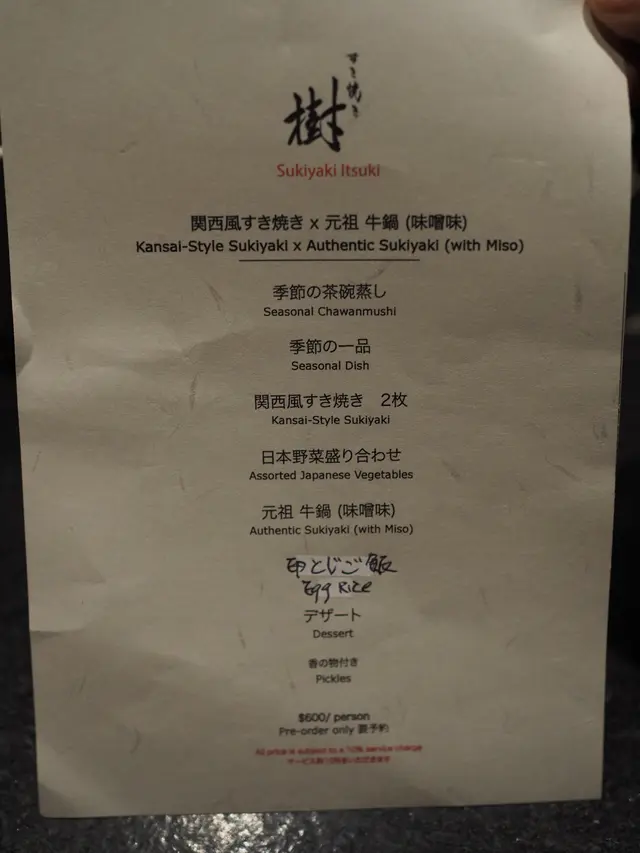 すき焼き
樹
Sukiyaki Itsuki
関西風すき焼き x 元祖 牛鍋 (味噌味)
Kansai-Style Sukiyaki x Authentic Sukiyaki (with Miso)
季節の茶碗蒸し
Seasonal Chawanmushi
季節の一品
Seasonal Dish
関西風すき焼き 2枚
Kansai-Style Sukiyaki
日本野菜盛り合わせ
Assorted Japanese Vegetables
元祖 牛鍋 (味噌味)
Authentic Sukiyaki (with Miso)
卵とじご飯
Egg Rice
デザート
Dessert
香の物付き
Pickles
$600/ person
Pre-order only 要予約
All price is subject to a 10% service charge
サービス料10%をいただきます